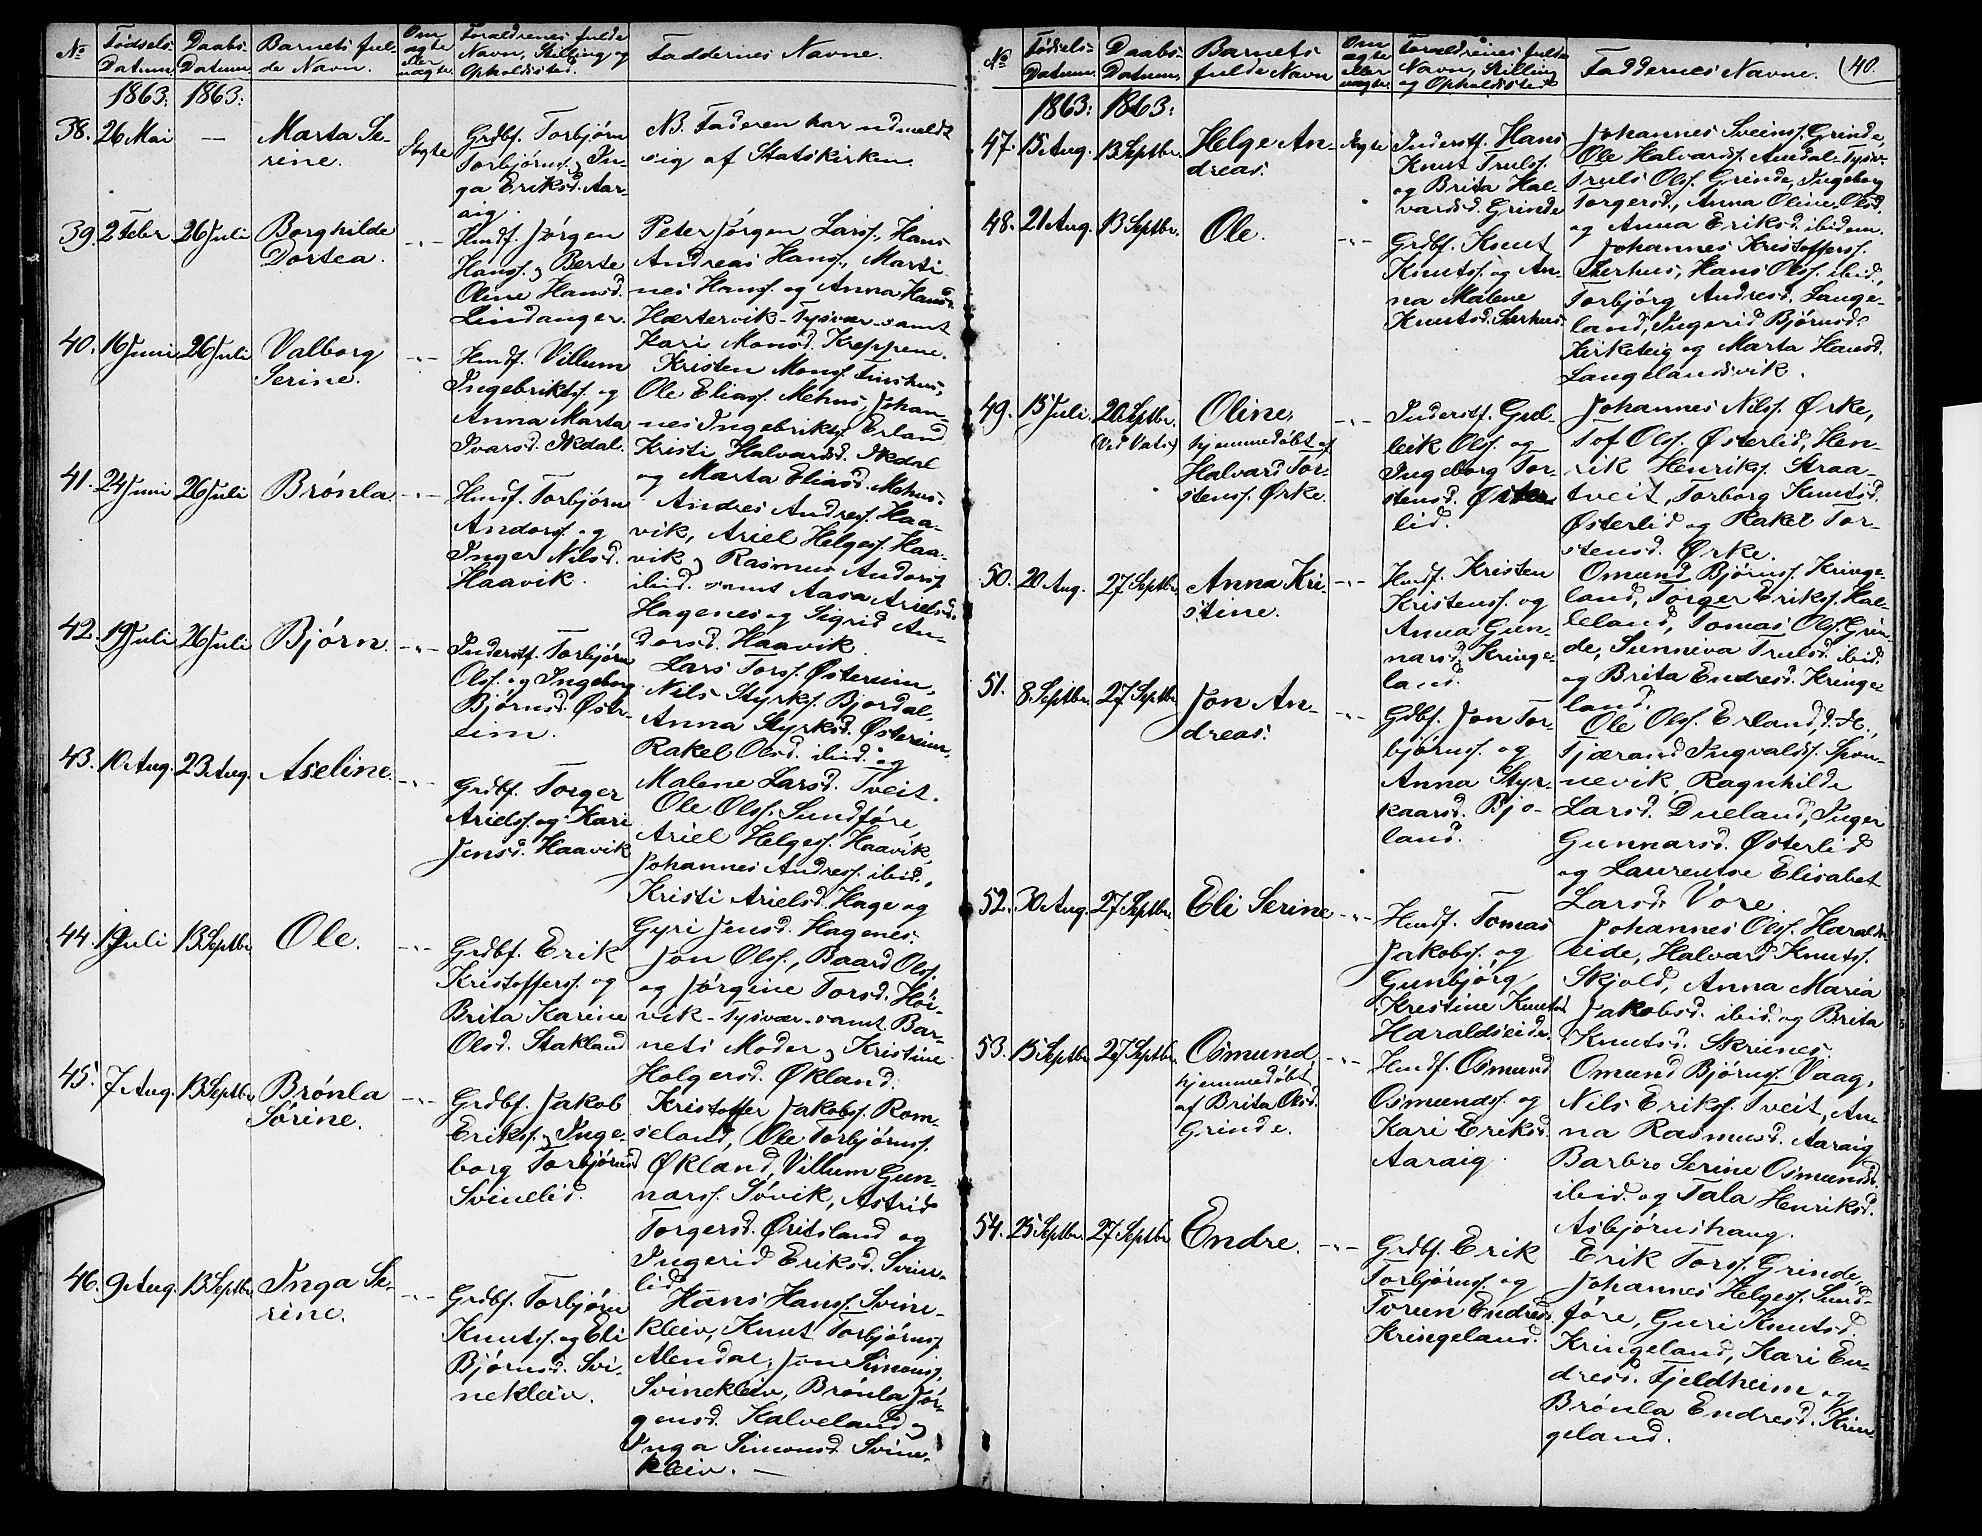 No
Fødsels-
Datum.
Daabs-
Datum.
Barnets ful-
de Navn.
Om
ægte
eller
uægte.
Forældrenes fulde
Navn, Stilling og
Opholdssted.
Faddernes Navne.
1863:
1863:
38.
26 Mai
—
Marta Se-
rine.
Ægte
Grdbf. Torbjørn
Torbjørns. & In-
ga Eriksd. Aar-
aig.
NB. Faderen har udmeldt
sig af Statskirken.
39.
2 Febr
26 Juli
Borghilde
Dortea.
-"-
Hmdf. Jørgen
Hans. & Berte
Oline Hansd.
Lindanger.
Peter Jørgen Larss., Hans
Andreas Hans., Marti-
nes Hans. og Anna Hansd.
Hærtervik - Tysvær - samt
Kari Monsd. Kreppene.
40.
16 Juni
26 Juli
Valborg
Serine.
-"-
Hmdf. Villum
Ingebrikts. og
Anna Marta
Ivarsd. Ikdal.
Kristen Mons.
Ole Elias. Mehus, Johan-
nes Ingebrikts. Erland
Kristi Halvardsd. Ikdal
og Marta Eliasd. Mehus.
41.
24 Juni
26 Juli
Brønla
-"-
Hmdf. Torbjørn
Andors. og
Inger Nilsd.
Haavik.
Andres Andress. Haa-
vik, Ariel Helges. Haa-
vik & Rasmus Andors.
ibid. samt Aasa Arielsd.
Hagenes og Sigrid An-
dorsd. Haavik.
42.
19 Juli
26 Juli
Bjørn
-"-
Inderstf. Torbjørn
Ols. og Ingeborg
Bjørnsd. Øste-
eim.
Lars Tors. Østereim,
Nils Styrks. Bjordal,
Anna Styrksd. Østereim,
Rakel Olsd. ibid. og
Malene Larsd. Tveit.
43.
10 Aug.
23 Aug.
Aseline.
-"-
Grdbf. Torger
Ariels. og Kari
Jensd. Haavik
Ole Ols. Sundføre,
Ariel Helges. Haavik,
Johannes Andress. ibid.,
Kristi Arielsd. Hage og
Gyri Jensd. Hagenes.
44.
19 Juli
13 Septbr.
Ole.
-"-
Grdbf. Erik
Kristoffers. og
Brita Karine
Olsd. Stakland
Jon Ols., Baard Ols.
og Jørgine Torsd. Høi-
vik - Tysvær - samt Bar-
nets Moder & Kristine
Holgersd. Økland.
45.
7 Aug.
13 Septbr.
Brønla
Sørine.
-"-
Grdbf. Jakob
Eriks. & Inge-
borg Torbjørnsd
Svinelid.
Kristoffer Jakobs. Rom-
seland, Ole Torbjørns.
Økland, Villum Gun-
nars. Søvik, Astrid
Torgersd. Øritsland og
Ingerid Eriksd. Svine-
lid.
46.
9 Aug.
13 Septbr.
Inga Se-
rine.
-"-
Grdbf. Torbjørn
Knuts. og Eli
Bjørnsd. Svi-
nekleiv.
Hans Hans. Svine-
kleiv, Knut Torbjørns.
Alendal, Jon Simons.
Svinekleiv, Brønla Jør-
gensd. Kalveland &
Inga Simonsd. Svine-
kleiv. —
No
Fødsels-
Datum.
Daabs-
Datum.
Barnets
fulde Navn
Om
ægte
eller
uægte.
Forældrenes fulde
Navn, Stilling
og Opholdssted
Faddernes Navne.
40.
1863:
1863:
47.
15 Aug.
13 Septbr.
Helge An-
dreas.
Ægte
Inderstf. Hans
Knut Truls.
og Brita Hal-
vardsd. Grinde
Johannes Sveins. Grinde,
Ole Halvards. Amdal - Tysv.
Truls Ols. Grinde, Ingeborg
Torgersd., Anna Oline Olsd.
og Anna Eriksd. ibidem.
48.
21 Aug.
13 Septbr.
Ole.
-"-
Grdbf. Knut
Knuts. og An-
na Malene
Knutsd.
Johannes Kristoffers.
Hans Ols. ibid.,
Torbjørg Andresd. Lange-
land, Ingerid Bjørnsd.
Kirketeig og Marta Hansd.
Langelandsvik.
49.
15 Juli.
20 Septbr.
(Ved Vats)
Oline,
hjemmedøbt af
Halvard Tor-
stens. Ørke.
-"-
Inderstf. Gud-
leik Ols. og
Ingeborg Tor-
stensd. Øster-
lid.
Johannes Nils. Ørke,
Tof Ols. Østerlid, Hen-
rik Henriks. Straa-
tveit, Torborg Knutsd.
Østerlid og Rakel Tor-
stensd. Ørke.
50.
20 Aug.
27 Septbr.
Anna Kri-
stine.
-"-
Hmdf. Kristen
Kristens. og
Anna Gun-
narsd. Kringe-
land.
Omund Bjørns. Kringe-
land, Torger Eriks. Hal-
leland, Tomas Ols. Grin-
de, Sunniva Trulsd. ibid.
og Brita Endresd. Kringe-
land.
51.
8 Septbr.
27 Septbr.
Jon An-
dreas.
-"-
Gdbf. Jon Tor-
bjørns. og
Anna Styr-
kaarsd. Bjo-
land.
Ole Ols. Erland, d. Æ.,
Tjærand Ingvalds. Spon-
nevik, Ragnhilde
Larsd. Dueland, Inger
Gunnarsd. Østerlid
og Laurentse Elisabet
Larsd. Vore.
52.
30 Aug.
27 Septbr.
Eli Serine
-"-
Hmdf. Tomas
Jakobs. og
Gunbjørg
Kristine Knutsd
Haraldseide.
Johannes Ols. Haralds-
eide, Halvard Knuts.
Skjold, Anna Maria
Jakobsd. ibid. og Brita
Knutsd. Skrunes.
53.
15 Septbr.
27 Septbr.
Osmund,
hjemmedøbt
af Brita Olsd.
Grinde.
-"-
Hmdf. Osmund
Osmunds. og
Kari Eriksd.
Aaraig.
Omund Bjørns. Vaag,
Nils Eriks. Tveit, An-
na Rasmusd. Aaraig
Barbro Serine Osmundsd.
ibid. og Tala Henriksd.
Asbjørnshaug.
54.
25 Septbr.
27 Septbr.
Endre.
-"-
Grdbf. Erik
Torbjørns. og
Toren Endresd.
Kringeland.
Erik Tors. Grinde,
Johannes Helges. Sund-
føre, Guri Knutsd.
Kringeland, Kari En-
dresd. Fjeldheim og
Brønla Endresd. Krin-
geland.